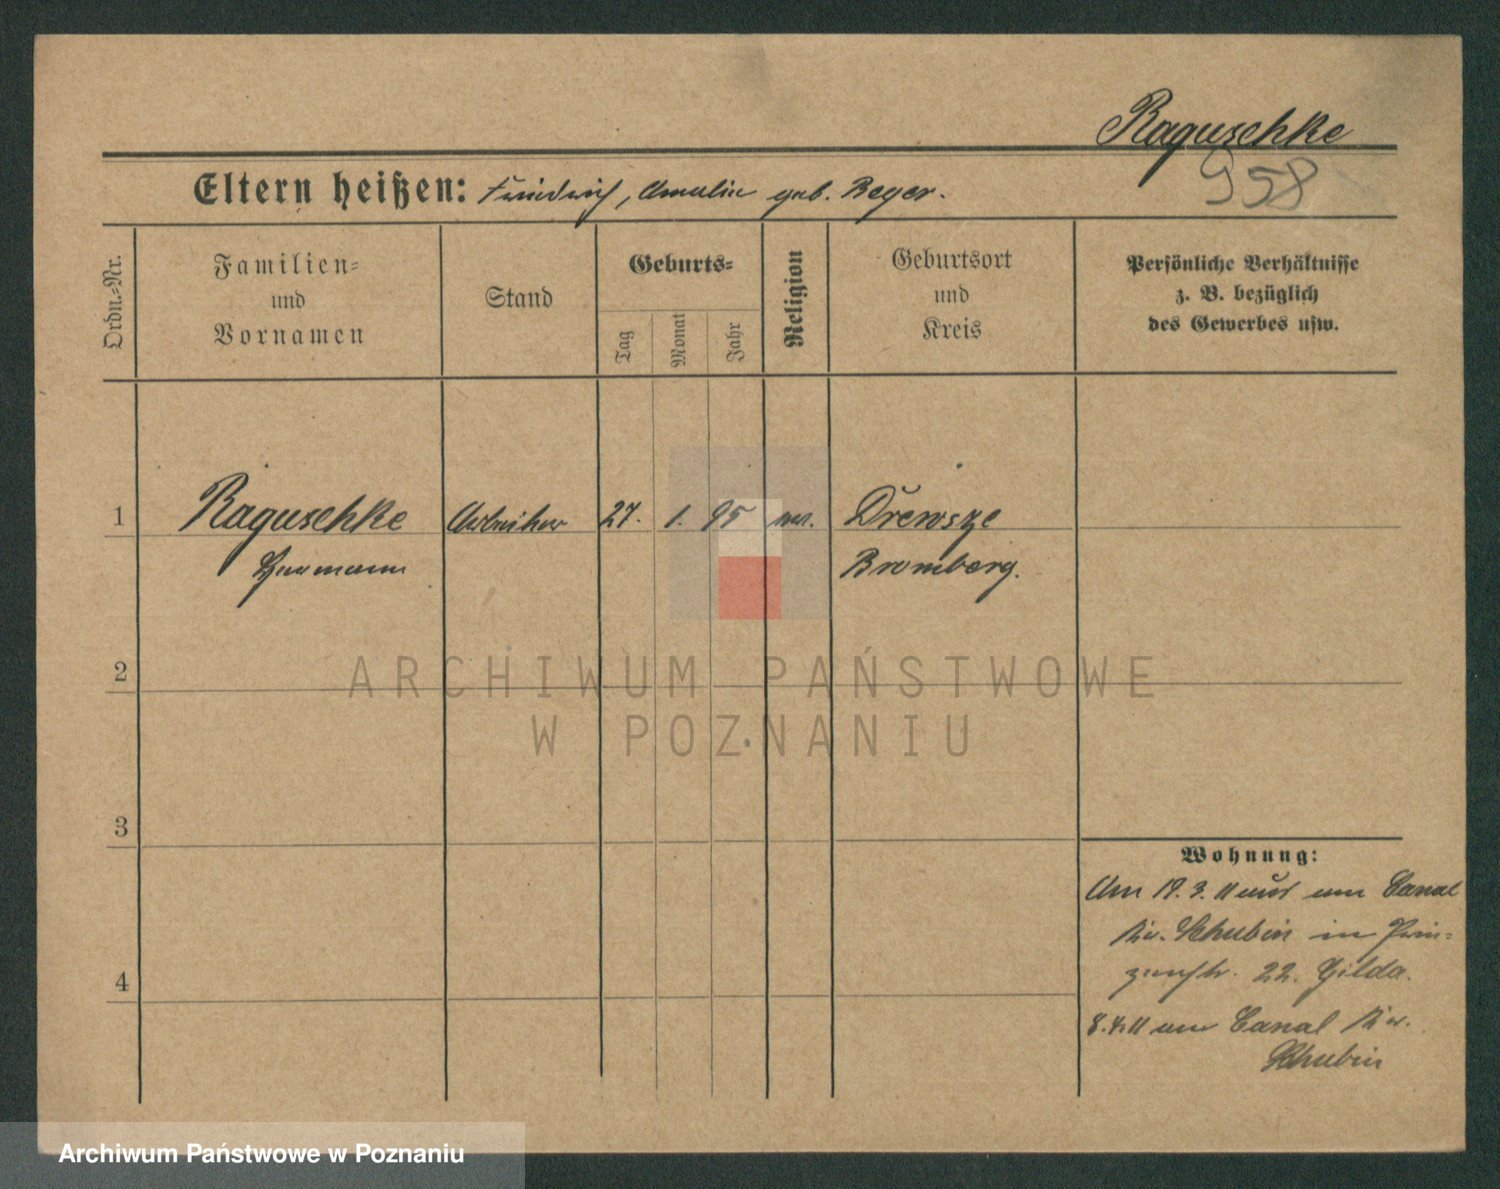 Raguschke
958
Eltern heißen: Friedrich, Amalie geb. Beger.
Ordn.-Nr.
Familien-
und
Vornamen
Stand
Geburts-
Tag
Monat
Jahr
Religion
Geburtsort
und
Kreis
Persönliche Verhältnisse
z. B. bezüglich
des Gewerbes usw.
1 Raguschke Arbeiter 27. 1. 95 ev. Drewsze
Hermann Bromberg.
2
3
4
ARCHIWUM PAŃSTWOWE
W POZNANIU
Wohnung:
Am 18. 3. 11 aus am Canal
Kr. Schubin in Prin-
zenstr. 22. Gilda.
8. 4. 11 am Canal Kr.
Schubin
Archiwum Państwowe w Poznaniu